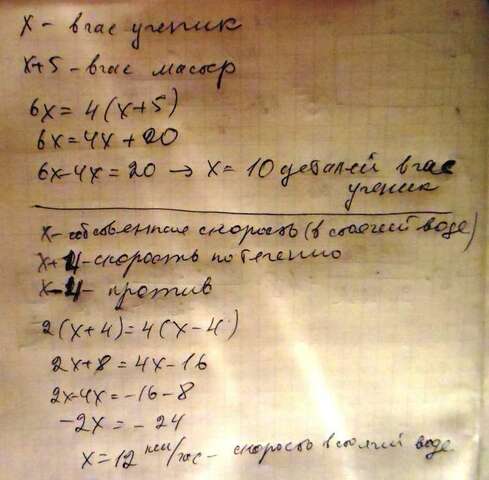 x - в час ученик
x+5 - в час мастер
6x = 4(x+5)
6x = 4x + 20
6x-4x = 20 → x = 10 деталей в час
ученик
x - собственная скорость (в стоячей воде)
x+4 - скорость по течению
x-4 - против
2(x+4) = 4(x-4)
2x+8 = 4x-16
2x-4x = -16-8
-2x = -24
x = 12 км/час - скорость в стоячей воде